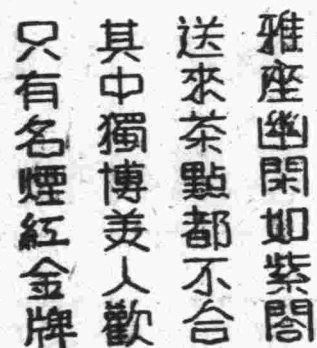 雅座幽閑如紫閣
送來茶點都不合
其中獨博美人歡
只有名煙紅金牌